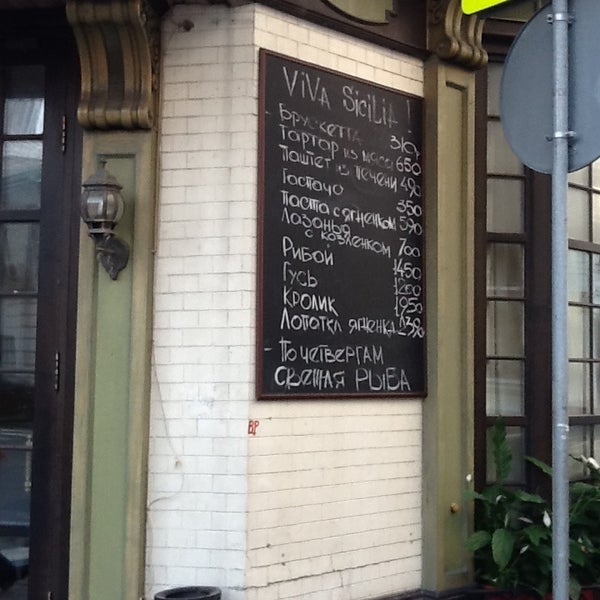 ViVA SiciLiA!
БРУСКЕТТА 310
ТАРТАР ИЗ МЯСА 650
ПАШТЕТ ИЗ ПЕЧЕНИ 490
ГАСПАЧО 350
ПАСТА С ЯГНЕНКОМ 590
ЛАЗАНЬЯ
С КОЗЛЕНКОМ 700
РИБОЙ 1450
ГУСЬ 1200
КРОЛИК 1950
ЛОПАТКА ЯГНЕНКА 2390
- ПО ЧЕТВЕРГАМ
СВЕТЛЯ РЫБА
ВР